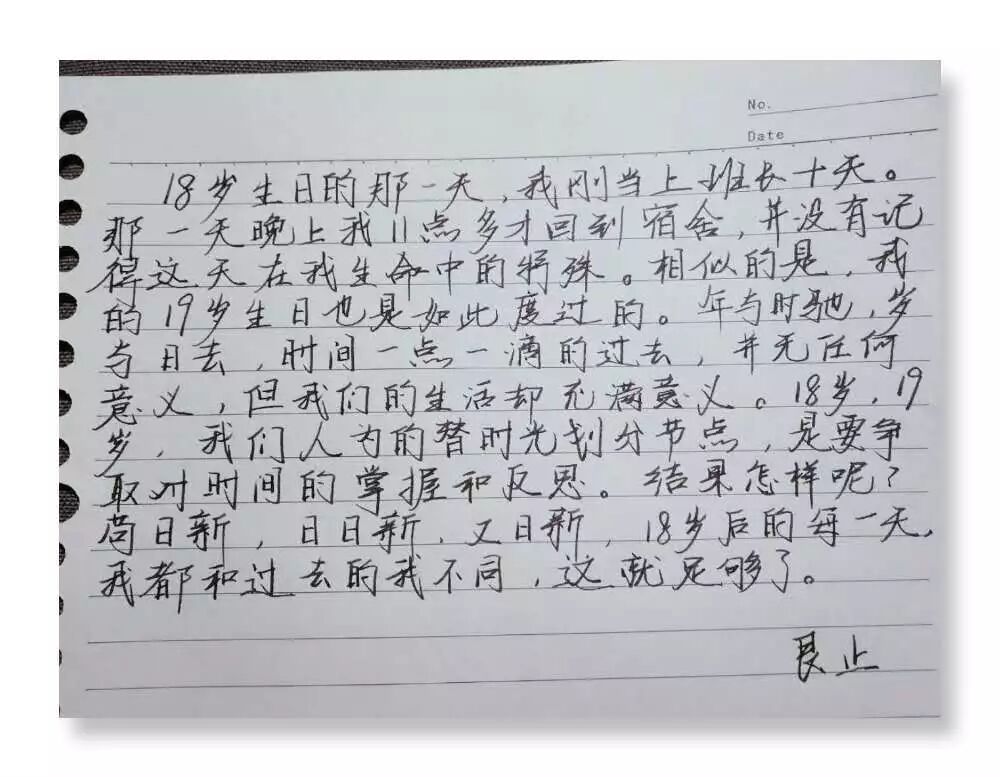 No.
Date
18岁生日的那一天,我刚当上班长十天。
那一天晚上我11点多才回到宿舍,并没有记
得这天在我生命中的特殊。相似的是,我
的19岁生日也是如此度过的。年与时驰,岁
与日去,时间一点一滴的过去,并无任何
意义,但我们的生活却充满意义。18岁,19
岁,我们人为的替时光划分节点,是要争
取对时间的掌握和反思。结果怎样呢?
苟日新,日日新,又日新,18岁后的每一天,
我都和过去的我不同,这就足够了。
艮止